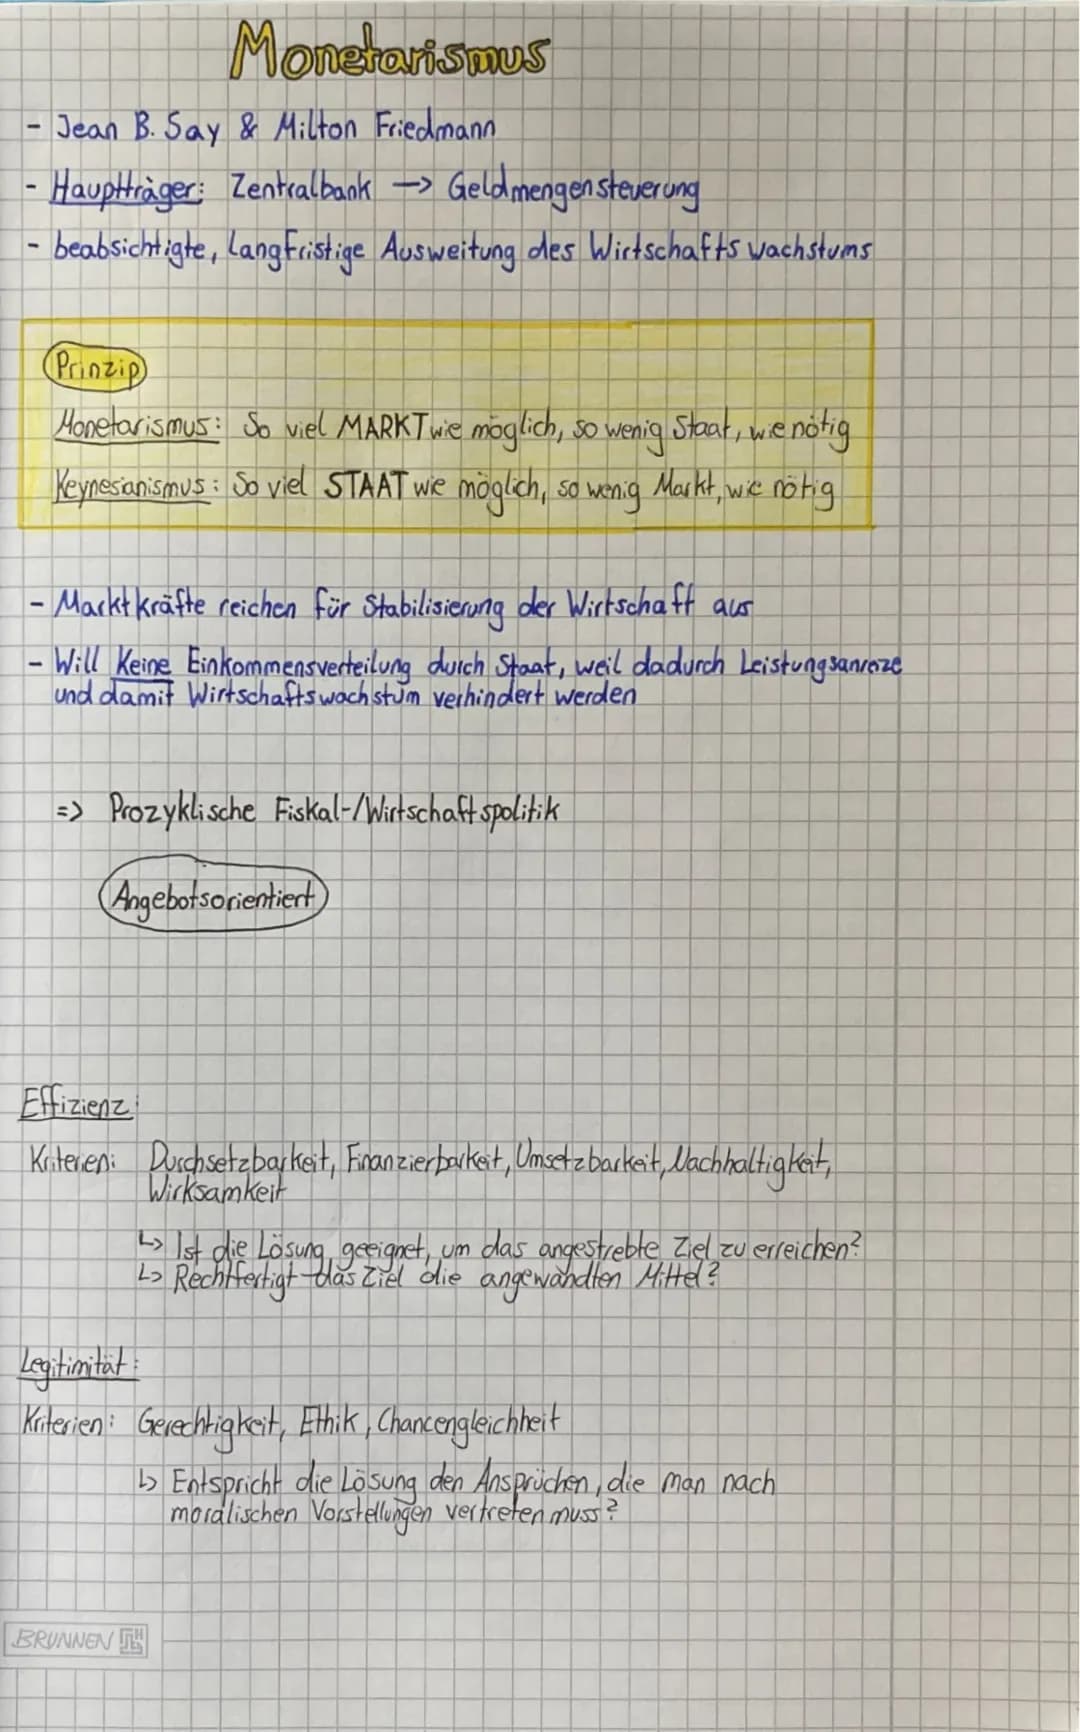 Monetarismus
- Jean B. Say & Milton Friedmann
- Hauptträger: Zentralbank -> Geldmengensteuerung
- beabsichtigte, langfristige Ausweitung des Wirtschaftswachstums
Prinzip
Monetarismus: So viel MARKT wie möglich, so wenig Staat, wie nötig
Keynesianismus: So viel STAAT wie möglich, so wenig Markt, wie nötig
- Marktkräfte reichen für Stabilisierung der Wirtschaft aus
- Will Keine Einkommensverteilung durch Staat, weil dadurch Leistungsanreize
und damit Wirtschaftswachstum verhindert werden
=> Prozyklische Fiskal-/Wirtschaftspolitik
Angebotsorientiert
Effizienz:
Kriterien: Durchsetzbarkeit, Finanzierbarkeit, Umsetzbarkeit, Nachhaltigkeit,
Wirksamkeit
↳ Ist die Lösung geeignet, um das angestrebte Ziel zu erreichen?
↳ Rechtfertigt das Ziel die angewandten Mittel?
Legitimität:
Kriterien: Gerechtigkeit, Ethik, Chancengleichheit
↳ Entspricht die Lösung den Ansprüchen, die man nach
moralischen Vorstellungen vertreten muss?
BRUNNEN